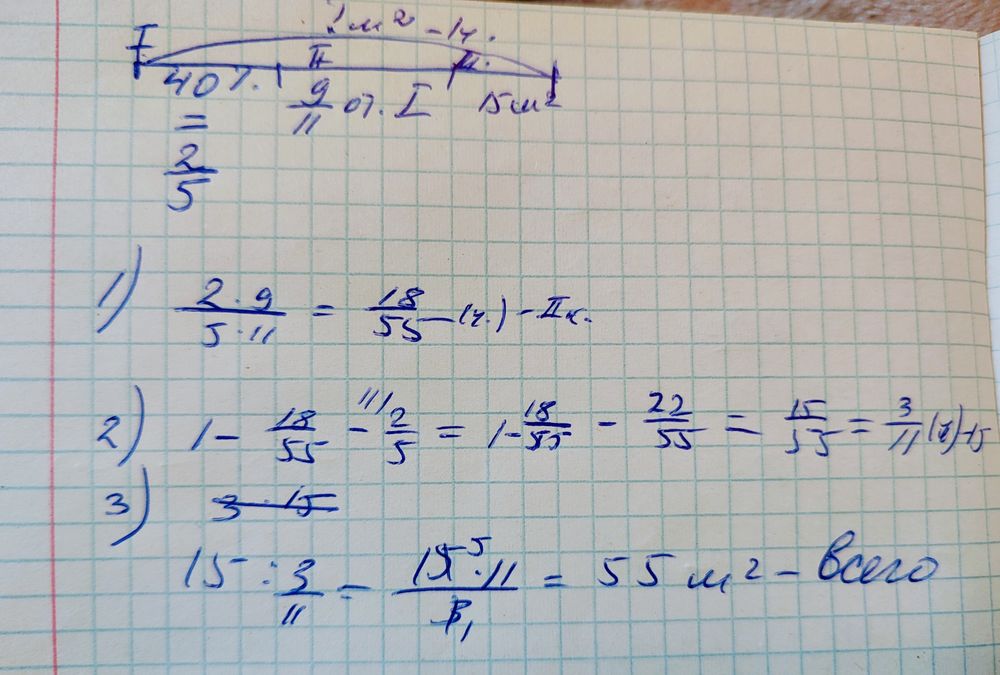 ? м² – 1ч.
I II к.
40%. 9/11 от. I 15 м²
=
2/5
1) 2·9/5·11 = 18/55 – (ч.) – II к.
2) 1 – 18/55 – 11/2/5 = 1 – 18/55 – 22/55 = 15/55 = 3/11 (ч) – 15
3) 3 · 15
15 : 3/11 = 15 5·11/3 1 = 55 м² – всего